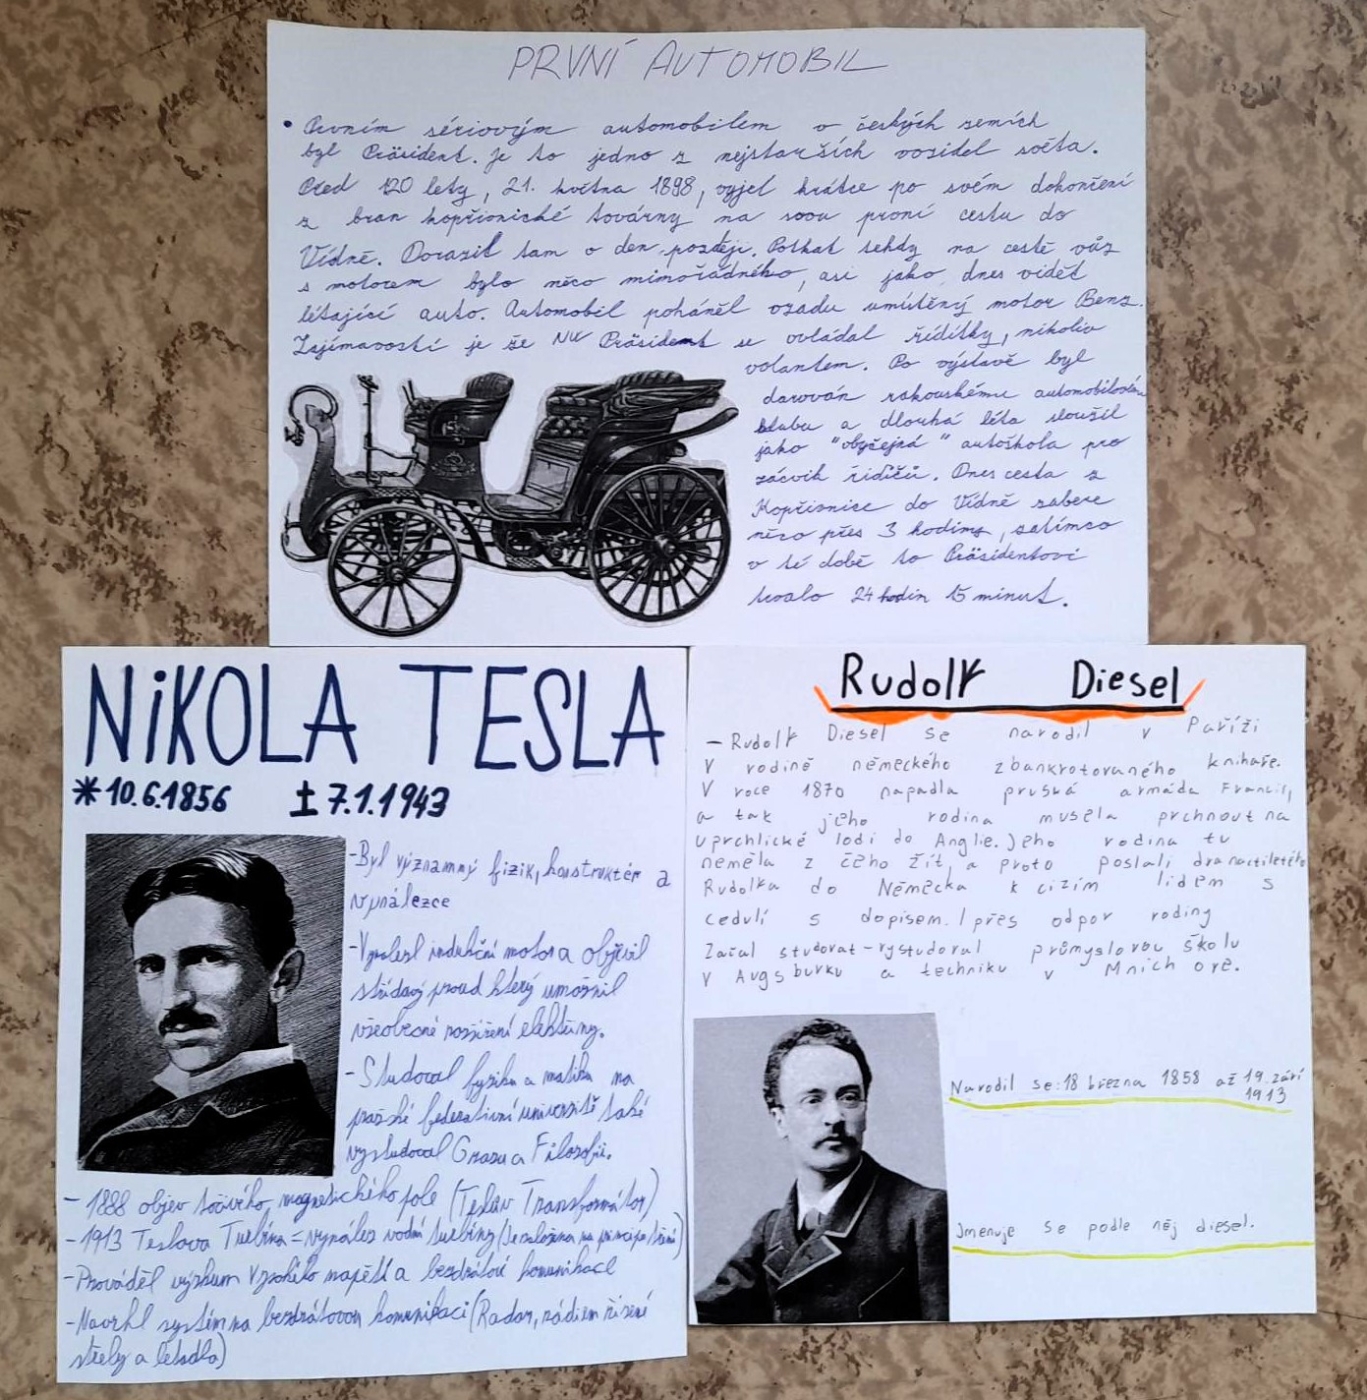 PRVNÍ AUTOMOBIL
• Prvním sériovým automobilem v českých zemích
byl Präsident. Je to jedno z nejstarších vozidel světa.
Před 120 lety, 21. května 1898, vyjel krátce po svém dokončení
z bran kopřivnické továrny na svou první cestu do
Vídně. Dorazil tam o den později. Potkat tehdy na cestě vůz
s motorem bylo něco mimořádného, asi jako dnes vidět
létající auto. Automobil poháněl vzadu umístěný motor Benz.
Zajímavostí je že NW Präsident se ovládal řídítky, nikoliv
volantem. Po výstavě byl
darován rakouskému automobilovému
klubu a dlouhá léta sloužil
jako "obyčejná" autoškola pro
zácvik řidičů. Dnes cesta z
Kopřivnice do Vídně zabere
něco přes 3 hodiny, zatímco
v té době to Präsidentovi
trvalo 24 hodin 15 minut.
NiKOLA TESLA
*10.6.1856 ± 7.1.1943
-Byl významný fizik, konstruktér a
vynálezce
-Vynalezl indukční motor a objevil
střídavý proud který umožnil
všeobecné rozšíření elektřiny.
-Studoval fyziku a matiku na
pražské federativní univerzitě také
vystudoval Grazu a Filozofii.
- 1888 objev točivého magnetického pole (Teslův Transformátor)
- 1913 Teslova Turbína = vynález vodní turbíny (je založena na principu tření)
-Prováděl výzkum vysokého napětí a bezdrátové komunikace
-Navrhl systém na bezdrátovou komunikaci (Radar, rádiem řízené
střely a letadla)
Rudolf Diesel
- Rudolf Diesel se narodil v Paříži
v rodině německého zbankrotovaného knihaře.
V roce 1870 napadla pruská armáda Francii,
a tak jeho rodina musela prchnout na
uprchlické lodi do Anglie. Jeho rodina tu
neměla z čeho žít, a proto poslali dvanactiletého
Rudolfa do Německa k cizím lidem s
cedulí s dopisem. I přes odpor rodiny
začal studovat - vystudoval průmyslovou školu
v Augsburku a techniku v Mnichově.
Narodil se: 18 března 1858 až 19. září
1913
Jmenuje se podle něj diesel.